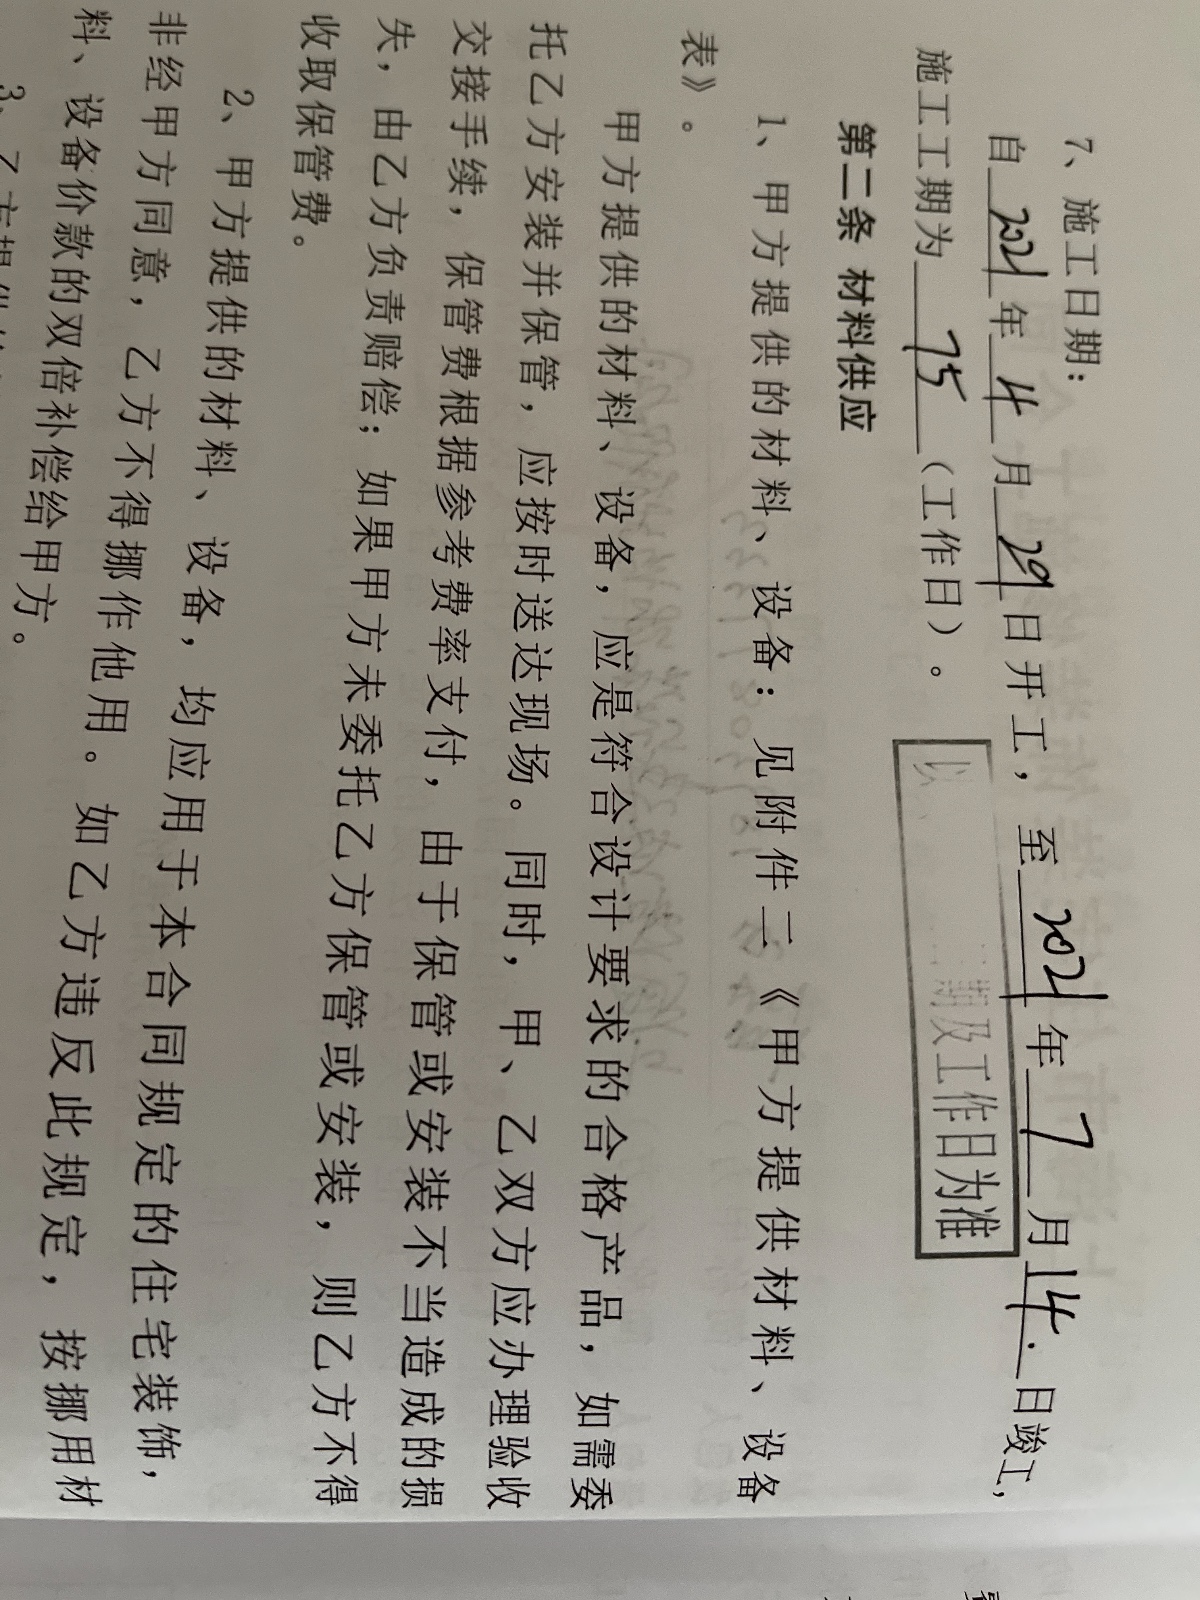 7、施工日期：
自 2021 年 4 月 29 日开工，至 2021 年 7 月 14. 日竣工，
施工工期为 75 （工作日）。
以 期及工作日为准
第二条 材料供应
1、甲方提供的材料、设备：见附件二《甲方提供材料、设备
表》。
甲方提供的材料、设备，应是符合设计要求的合格产品，如需委
托乙方安装并保管，应按时送达现场。同时，甲、乙双方应办理验收
交接手续，保管费根据参考费率支付，由于保管或安装不当造成的损
失，由乙方负责赔偿；如果甲方未委托乙方保管或安装，则乙方不得
收取保管费。
2、甲方提供的材料、设备，均应用于本合同规定的住宅装饰，
非经甲方同意，乙方不得挪作他用。如乙方违反此规定，按挪用材
料、设备价款的双倍补偿给甲方。
3、乙方提供